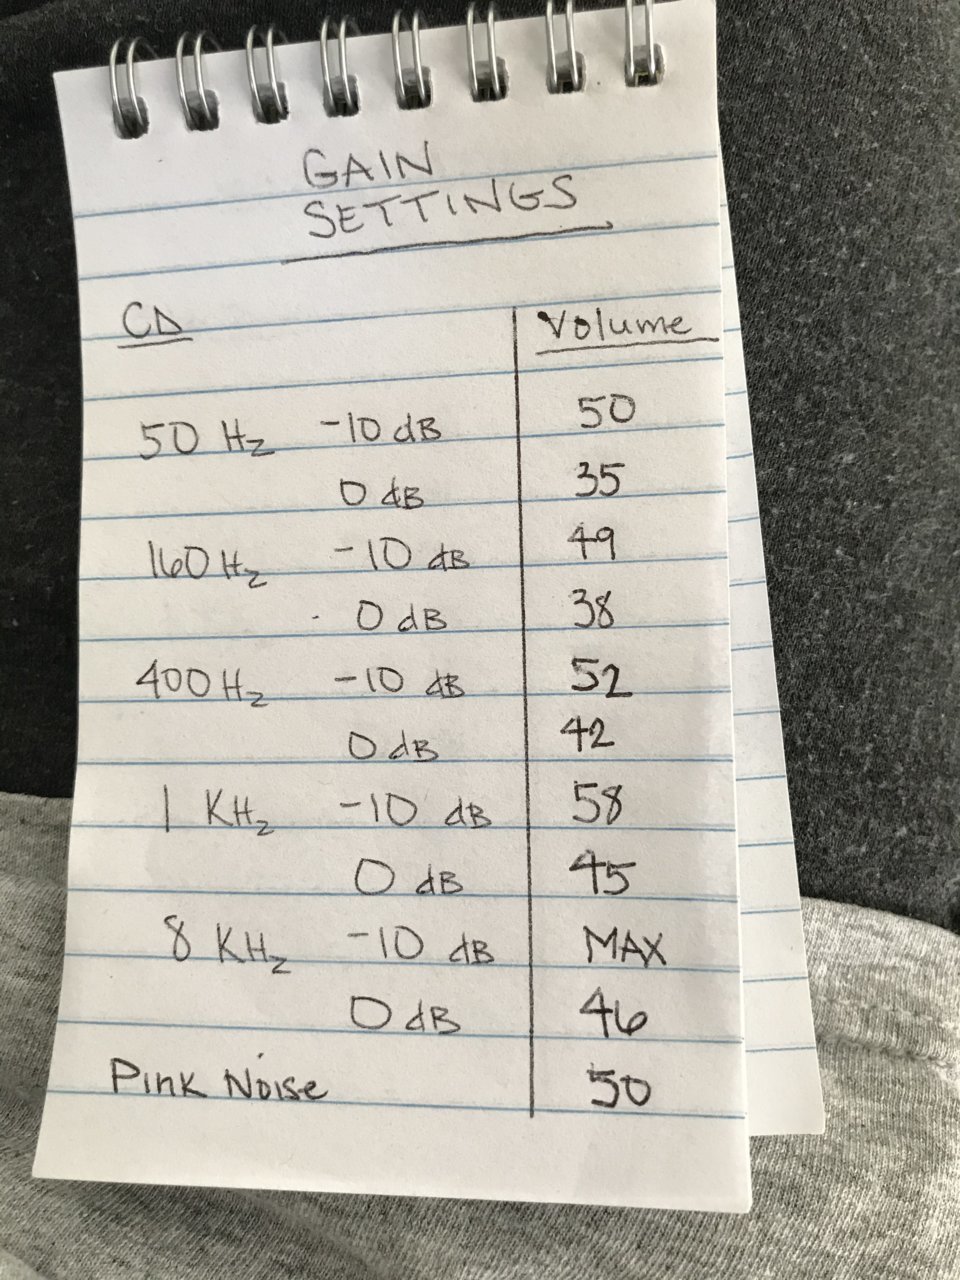 GAIN
SETTINGS
CD Volume
50 Hz -10 dB 50
0 dB 35
160 Hz -10 dB 49
0 dB 38
400 Hz -10 dB 52
0 dB 42
1 KHz -10 dB 58
0 dB 45
8 KHz -10 dB MAX
0 dB 46
Pink Noise 50